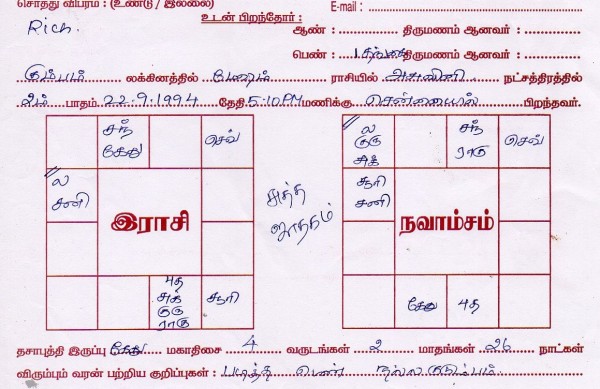 சொத்து விபரம் : (உண்டு / இல்லை)
E-mail :
Rich.
உடன் பிறந்தோர் :
ஆண் : திருமணம் ஆனவர் :
பெண் : 1 திருமணம் ஆனவர் :
கும்பம் லக்கினத்தில் மேஷம் ராசியில் அசுவினி நட்சத்திரத்தில்
2ம் பாதம். 22-9-1994 தேதி 5.10 PM மணிக்கு சென்னையில் பிறந்தவர்.
சந்
கேது
செவ்
ல
சனி
இராசி
சுக்
குரு
ராகு
சூரி
சுத்த
ஜாதகம்
ல
குரு
சுக்
சந்
ராகு
செவ்
சூரி
சனி
நவாம்சம்
கேது
தசாபுத்தி இருப்பு கேது மகாதிசை 4 வருடங்கள் 2 மாதங்கள் 26 நாட்கள்
விரும்பும் வரன் பற்றிய குறிப்புகள் : படித்த பெண் நல்ல குடும்பம்.